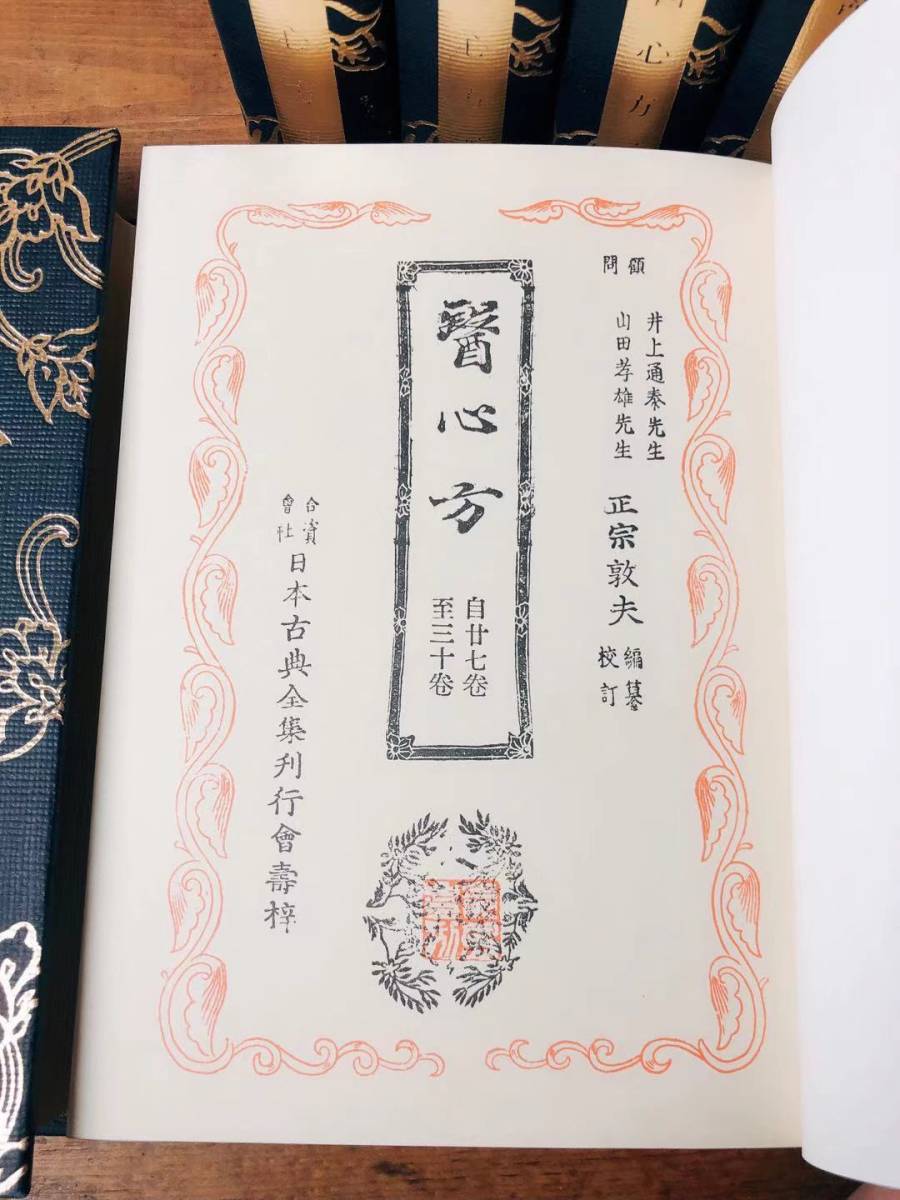 顧問
井上通泰先生
山田孝雄先生
正宗敦夫
編纂
校訂
醫心方
自廿七卷
至三十卷
合資
會社
日本古典全集刊行會壽梓
心方